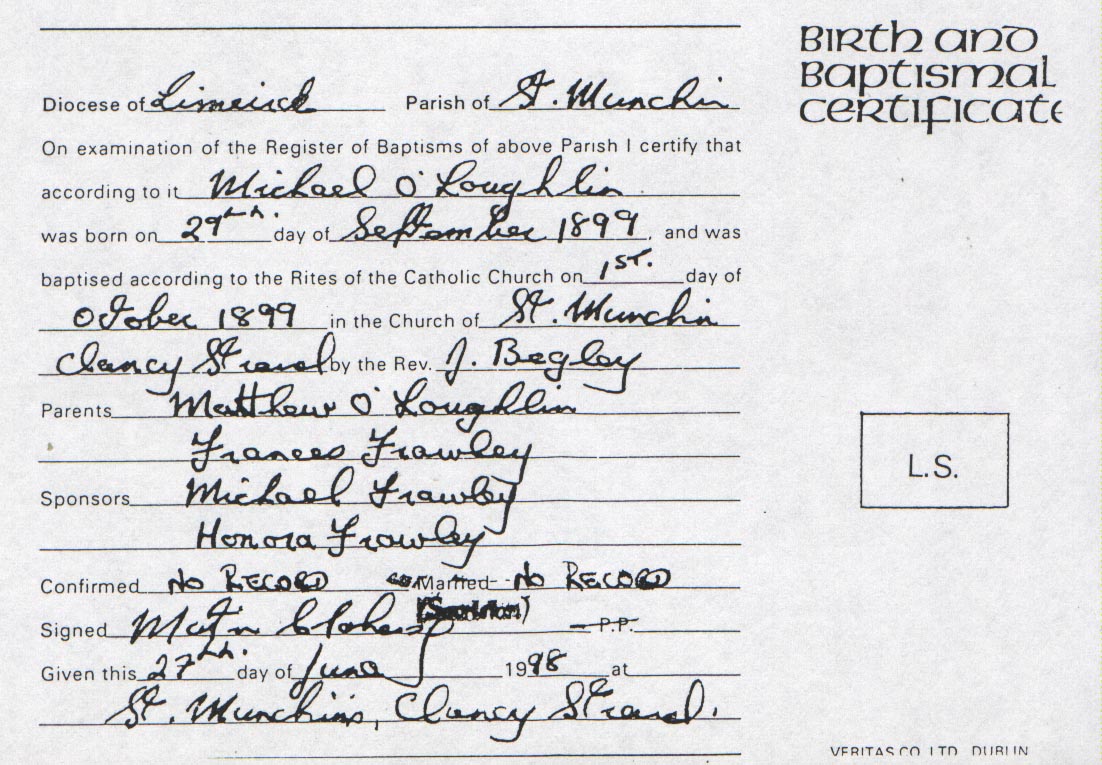 Birth and
Baptismal
Certificate
Diocese of Limerick Parish of St. Munchin
On examination of the Register of Baptisms of above Parish I certify that
according to it Michael O'Loughlin
was born on 29th. day of September 1899, and was
baptised according to the Rites of the Catholic Church on 1ST. day of
October 1899 in the Church of St. Munchin
Clancy Strand by the Rev. J. Begley
Parents Matthew O'Loughlin
Frances Frawley
Sponsors Michael Frawley
Honora Frawley
L.S.
Confirmed No RECORD Married No RECORD
Signed P.P.
Given this 27th. day of June 1998 at
St. Munchin's, Clancy Strand.
VERITAS CO. LTD. DUBLIN